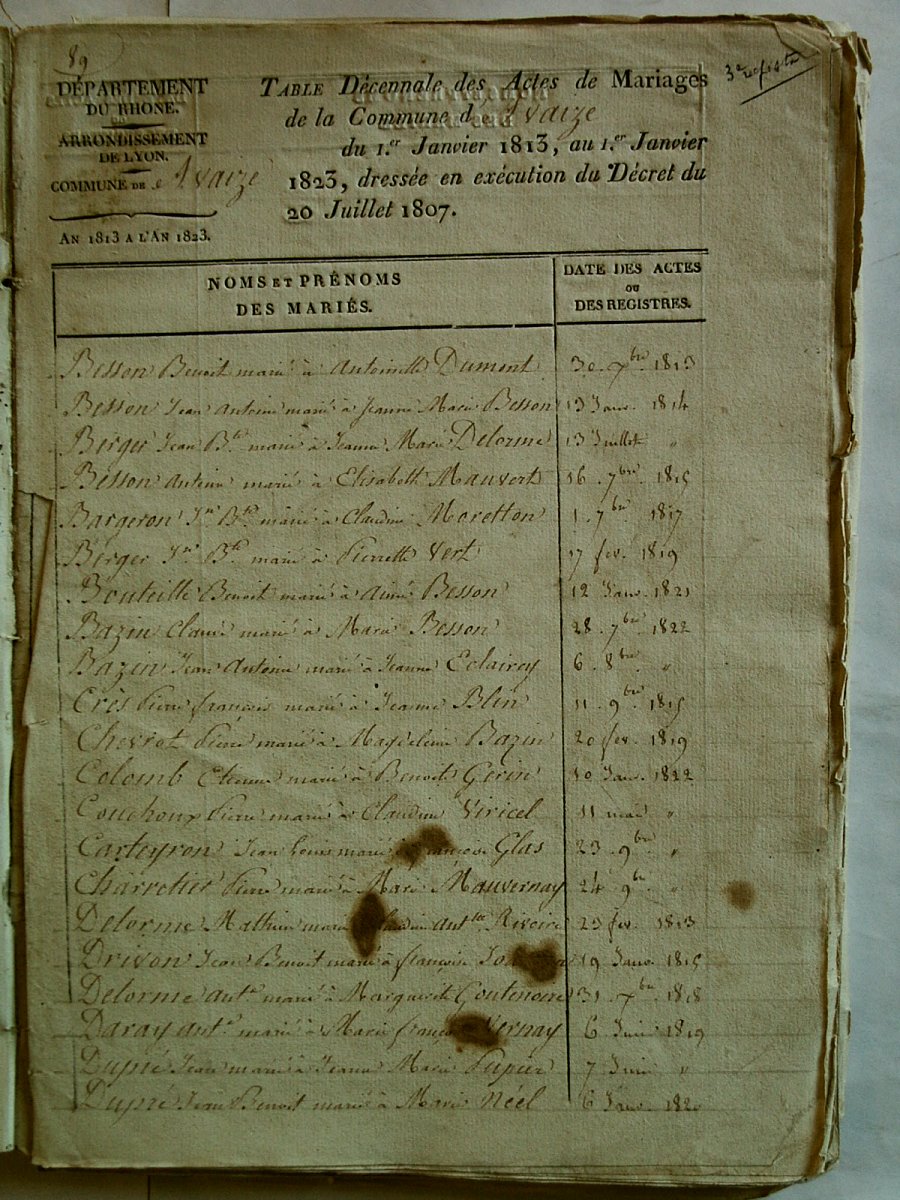 89
3e registre
DÉPARTEMENT
DU RHONE.
ARRONDISSEMENT
DE LYON.
COMMUNE DE
AN 1813 A L'AN 1823.
TABLE Décennale des Actes de Mariages
de la Commune d'Avaize
du 1.er Janvier 1813, au 1.er Janvier
1823, dressée en exécution du Décret du
20 Juillet 1807.
NOMS ET PRÉNOMS
DES MARIÉS.
DATE DES ACTES
OU
DES REGISTRES.
Besson Benoit marié à Antoinette Dumont 30 7bre 1813
Besson Jean Antoine marié à Jeanne Marie Besson 13 Janv. 1814
Berger Jean Bte marié à Jeanne Marie Delorme 13 Juillet "
Besson Antoine marié à Elisabeth Mauvert 16 7bre 1815
Bargeron Jn Bte marié à Claudine Moretton 1. 7bre 1817
Berger Jn Bte marié à Pierrette Vert 17 fev. 1819
Bouteille Benoit marié à Aimé Besson 12 Janv. 1821
Bazin Claude marié à Marie Besson 28. 7bre 1822
Bazin Jean Antoine marié à Jeanne Eclairey 6. 8bre "
Crès Pierre françois marié à Jeanne Blin 11. 9bre 1815
Chevrot Pierre marié à Magdeleine Bazin 20 fev. 1819
Colomb Etienne marié à Benoite Gerin 10 Janv. 1822
Couchoux Pierre marié à Claudine Viricel 11 mai "
Carteyron Jean Louis marié françoise Glas 23. 9bre "
Charretier Pierre marié à Marie Mauvernay 24 9bre "
Delorme Mathieu marié Claudine Antte Rivoire 23 fev. 1813
Drivon Jean Benoit marié à françoise 19 Janv. 1815
Delorme Ante marié à Marguerite Goutenoire 31. 7bre 1818
Daray Ante marié à Marie Vernay 6 Juin 1819
Dupré Jean marié à Jeanne Marie Papier 7 Juin "
Dupré Jean Benoit marié à Marie Néel 6 Janv. 1820